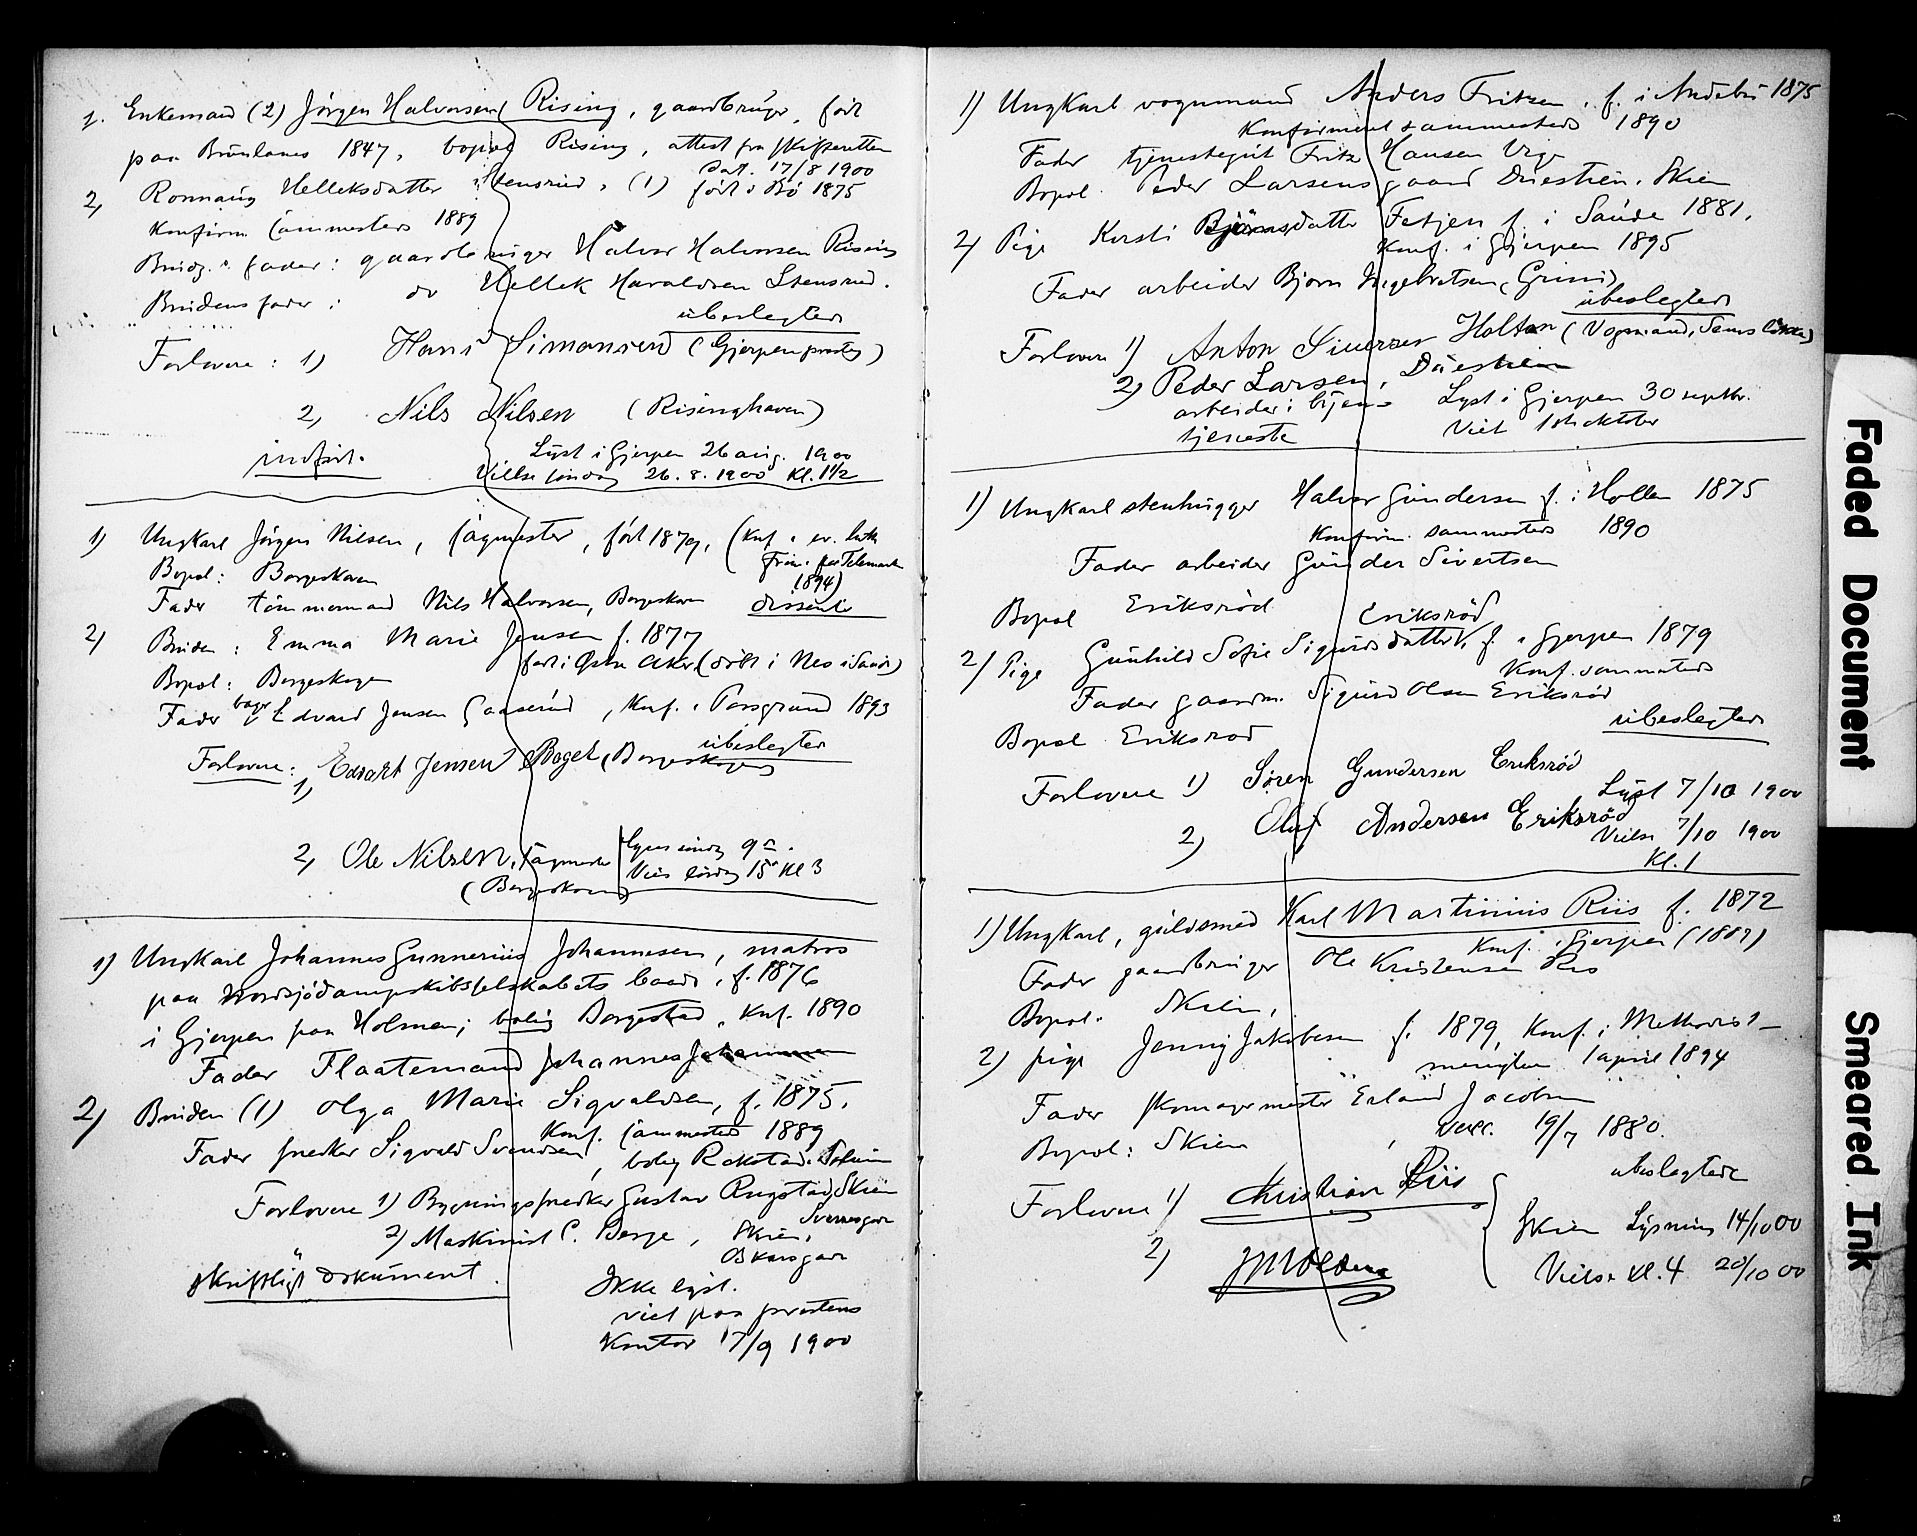 1. Enkemand (2) Jörgen Halvorsen Rising, gaardbruger, född
paa Brunlanes 1847, bopæl Rising, attest fra skifteretten
dat. 17/8 1900
2, Ronnaug Helleksdatter Stensrud, (1) född i Bö 1875
Konfirm. sammesteds 1889
Brudg.s fader: gaardbruger Halvor Halvorsen Rising
Brudens fader: do Hellek Haraldsen Stensrud.
ubeslegtede
Forlovere: 1) Hans Simonsen (Gjerpen prestg)
2, Nils Nilsen (Risinghaven)
indfört. Lyst i Gjerpen 26 aug. 1900
Vielse söndag 26.8.1900 Kl. 1 1/2
1) Ungkarl Jörgen Nilsen, sagmester, född 1879, (Konf. i ev. luth
Frim. for Telemarken
1894)
Bopæl: Borgeskoven
Fader tömmermand Nils Halvorsen, Borgeskoven dissenter
2) Bruden: Emma Marie Jensen f. 1877
född i Östre Aker (döbt i Nes i Saude)
Bopæl: Borgeskogen
Fader bager Edvard Jensen Gaaserud, Konf. i Porsgrund 1893
ubeslegtede
Forlovere: 1) Edvart Jensen Bager (Borgeskogen)
2, Ole Nilsen, sagmester
(Borgeskoven)
Lyses söndag 9de.
Vies lördag 15de Kl 3
1) Ungkarl Johannes Gunnerius Johannesen, matros
paa Nordsjödampskibsselskabets baade, f. 1876
i Gjerpen paa Holmen; bolig Borgestad, Konf. 1890
Fader Flaatemand Johannes Johannesen
2) Bruden (1) Olga Marie Sigvaldsen, f. 1875,
Konf. sammesteds 1889
Fader snedker Sigvald Svendsen, bolig Rakstad i Solum
Forlovere 1) Bygningssnedker Gustav Rugstad, Skien
Svensegade
2) Maskinist C. Berge, Skien,
skriftligt dokument.
Ikke lyst.
viet paa prestens
Kontor 17/9 1900
1) Ungkarl vognmand Anders Fritzen, f. i Andebu 1875
Konfirmeret sammesteds 1890
Fader tjenestegut Fritz Hansen Vige
Bopæl. Peder Larsens gaard Duestien, Skien
2) Pige Kirsti Björnsdatter Fetjen f. i Saude 1881,
Konf. i Gjerpen 1895
Fader arbeider Bjorn Ingebretsen (Grini)
ubeslegtede
Forlovere 1) Anton Siversen Holtan (Vognmand, Sems lökke)
2) Peder Larsen, Duestien
arbeider i byens
tjeneste
Lyst i Gjerpen 30 septbr.
Viet 1ste oktober
1) Ungkarl stenhugger Halvor Gundersen f. i Hollen 1875
Konfirm. sammesteds 1890
Fader arbeider Gunder Sivertsen
Bopæl Eriksröd
Eriksröd
2) Pige Gunhild Sofie Sigurdsdatter, f. i Gjerpen 1879
Konf. sammesteds
Fader gaardm. Sigurd Olsen Eriksröd
ubeslegtede
Bopæl Eriksröd
Forlovere 1) Sören Gundersen Eriksröd
Lyst 7/10 1900
2, Oluf Andersen Eriksröd
Vielse 7/10 1900
Kl. 1
1) Ungkarl, guldsmed Karl Martinius Riis f. 1872
Konf. i Gjerpen (1887)
Fader gaardbruger Ole Kristensen Riis
Bopæl. Skien,
2) pige Jenny Jakobsen f. 1879, Konf. i Methodist-
menigheden 1 april 1894
Fader skomagermester Erland Jacobsen
Bopæl: Skien, vacc. 19/7 1880.
ubeslegtede
Forlovere 1) Christian Riis
2)
Skien Lysning 14/10 00
Vielse Kl. 4 20/10 00
Faded Document
Smeared Ink